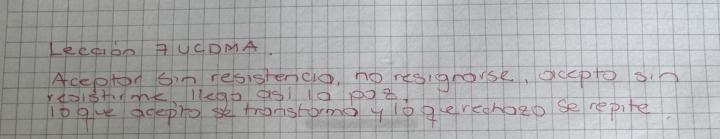 Lección 7 UCDMA.
Aceptar sin resistencia, no resignarse, acepto sin
resistirme, llego así la paz.
lo que acepto se transforma y lo que rechazo se repite